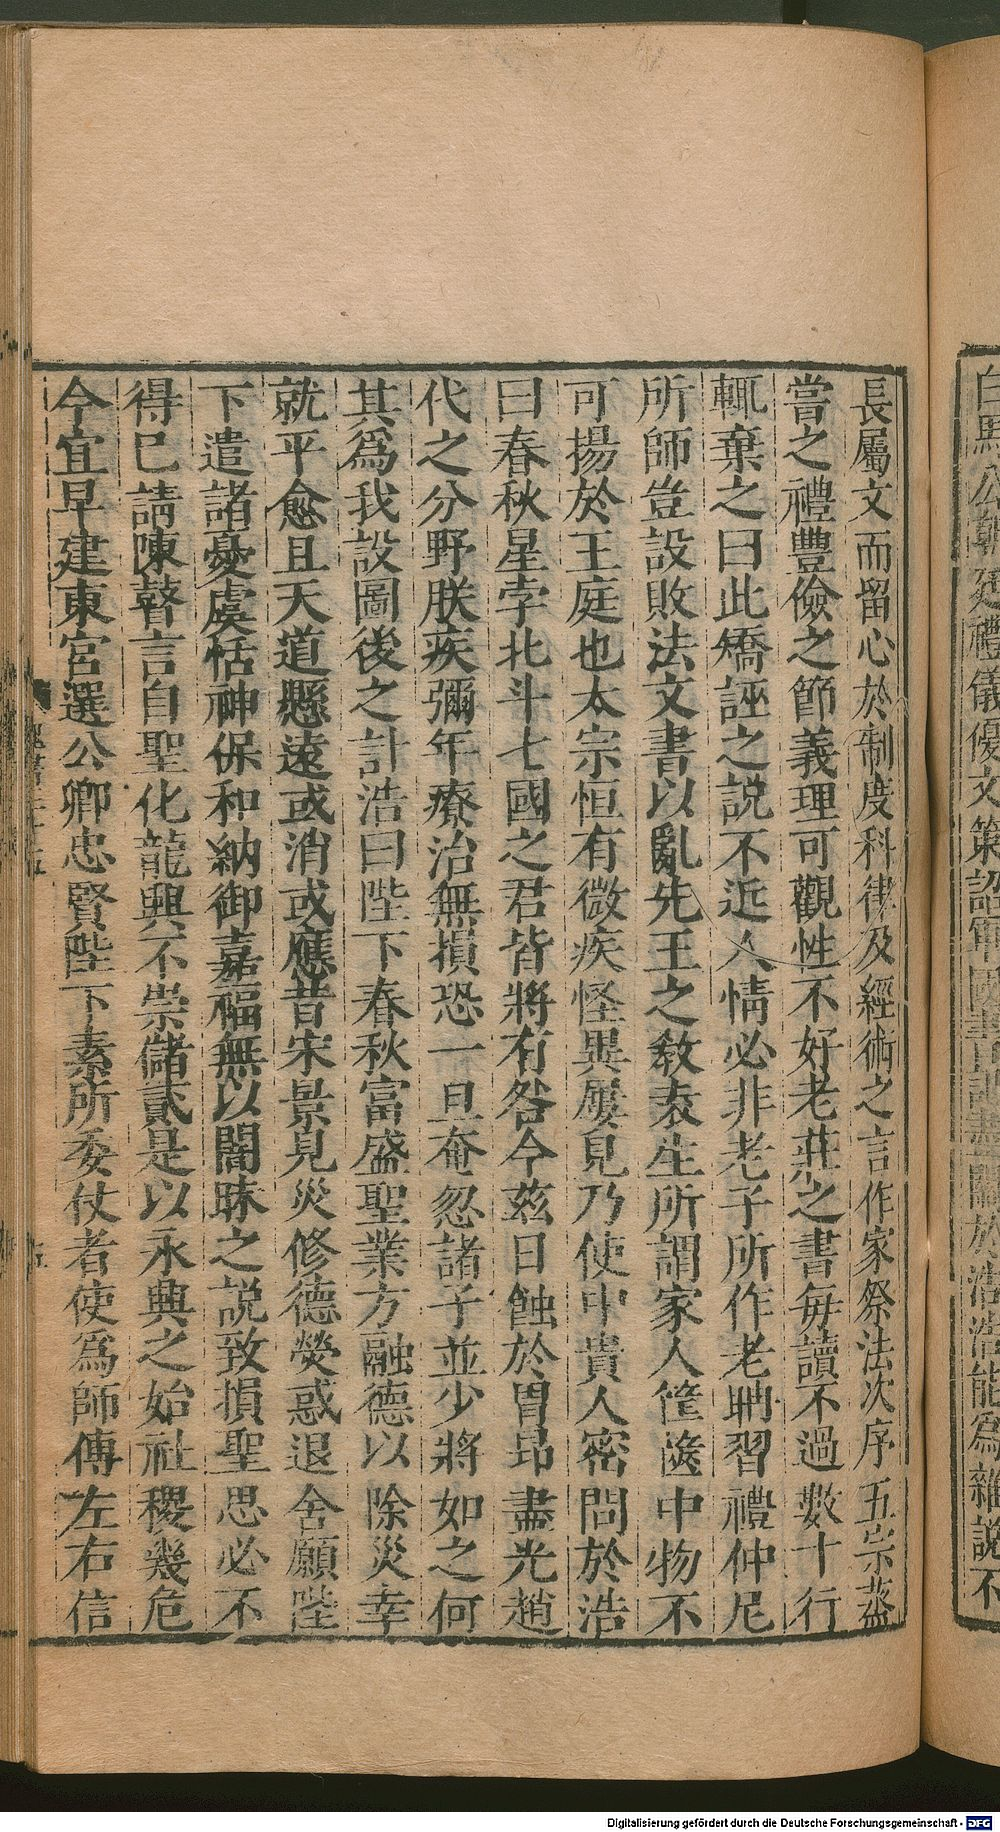 長屬文而留心於制度科律及經術之言作家祭法次序五宗蒸
甞之禮豐儉之節義理可觀性不好老莊之書每讀不過數十行
輒棄之曰此矯誣之說不近人情必非老子所作老聃習禮仲尼
所師豈設敗法文書以亂先王之敎袁生所謂家人筐篋中物不
可揚於王庭也太宗恒有微疾怪異屢見乃使中貴人密問於浩
曰春秋星孛北斗七國之君皆將有咎今茲日蝕於胃昴盡光趙
代之分野朕疾彌年療治無損恐一旦奄忽諸子並少將如之何
其爲我設圖後之計浩曰陛下春秋富盛聖業方融德以除災幸
就平愈且天道懸遠或消或應昔宋景見災修德熒惑退舍願陛
下遣諸憂虞恬神保和納御嘉福無以闇昧之說致損聖思必不
得已請陳瞽言自聖化龍興不崇儲貳是以永興之始社稷幾危
今宜早建東宮選公卿忠賢陛下素所委仗者使爲師傅左右信
Digitalisierung gefördert durch die Deutsche Forschungsgemeinschaft - DFG